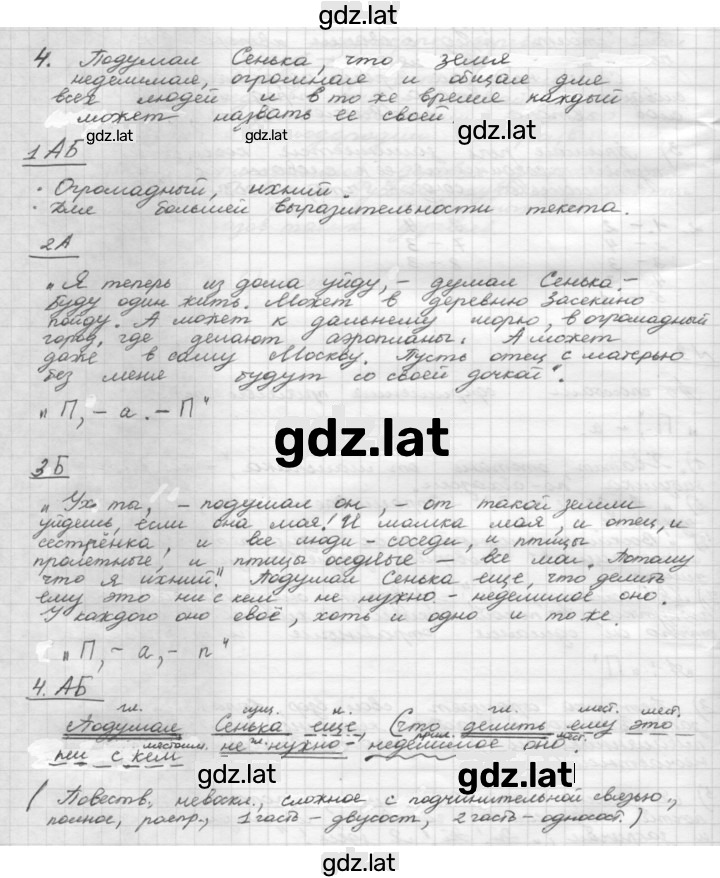 gdz.lat
4. Подумал Сенька, что земля
неделимая, огромная и общая для
всех людей и в то же время каждый
может назвать ее своей.
gdz.lat gdz.lat gdz.lat
1 АБ
· Огромадный, ихний.
· Для большей выразительности текста.
2А
„Я теперь из дома уйду, – думал Сенька. –
Буду один жить. Может в деревню Засекино
пойду. А может к дальнему морю, в огромадный
город, где делают аэропланы. А может
даже в саму Москву. Пусть отец с матерью
без меня будут со своей дочкой“.
„П, – а. – П“
gdz.lat
3 Б
„Ух ты, – подумал он, – от такой земли
уйдешь, если она моя! И мамка моя, и отец, и
сестрёнка, и все люди-соседи, и птицы
пролетные, и птицы оседлые – все мои. Потому
что я ихний“. Подумал Сенька еще, что делить
ему это ни с кем не нужно – неделимое оно.
У каждого оно своё, хоть и одно и то же.
„П, – а, – п“
4. АБ
гл. сущ. н. гл. мест. мест.
Подумал Сенька еще, (что делить ему это
местоим. прил. мест.
ни с кем не нужно – неделимое оно.
gdz.lat gdz.lat
(Повеств., невоскл., сложное с подчинительной связью,
полное, распр., 1 часть – двусост., 2 часть – односост.)
gdz.lat